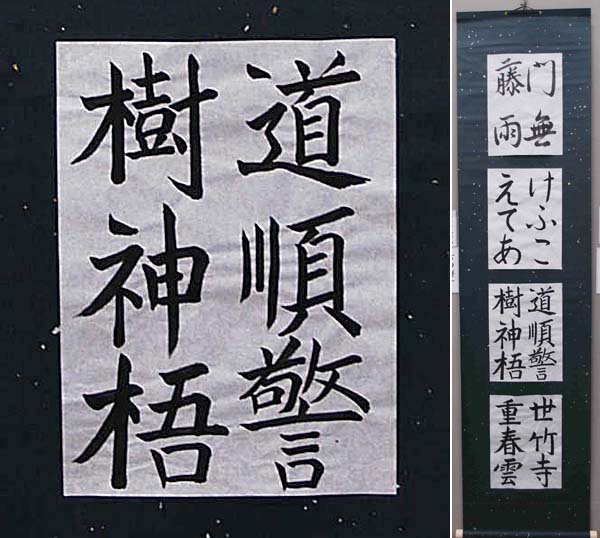 道順警
樹神梧
門無
藤雨
けふこ
えてあ
道順警
樹神梧
世竹寺
重春雲